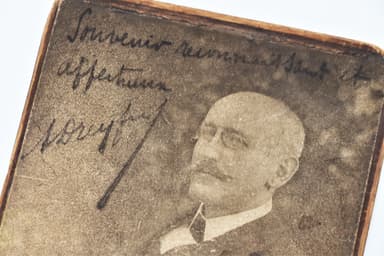 Souvenir reconnaissant et
affectueux
ADreyfus